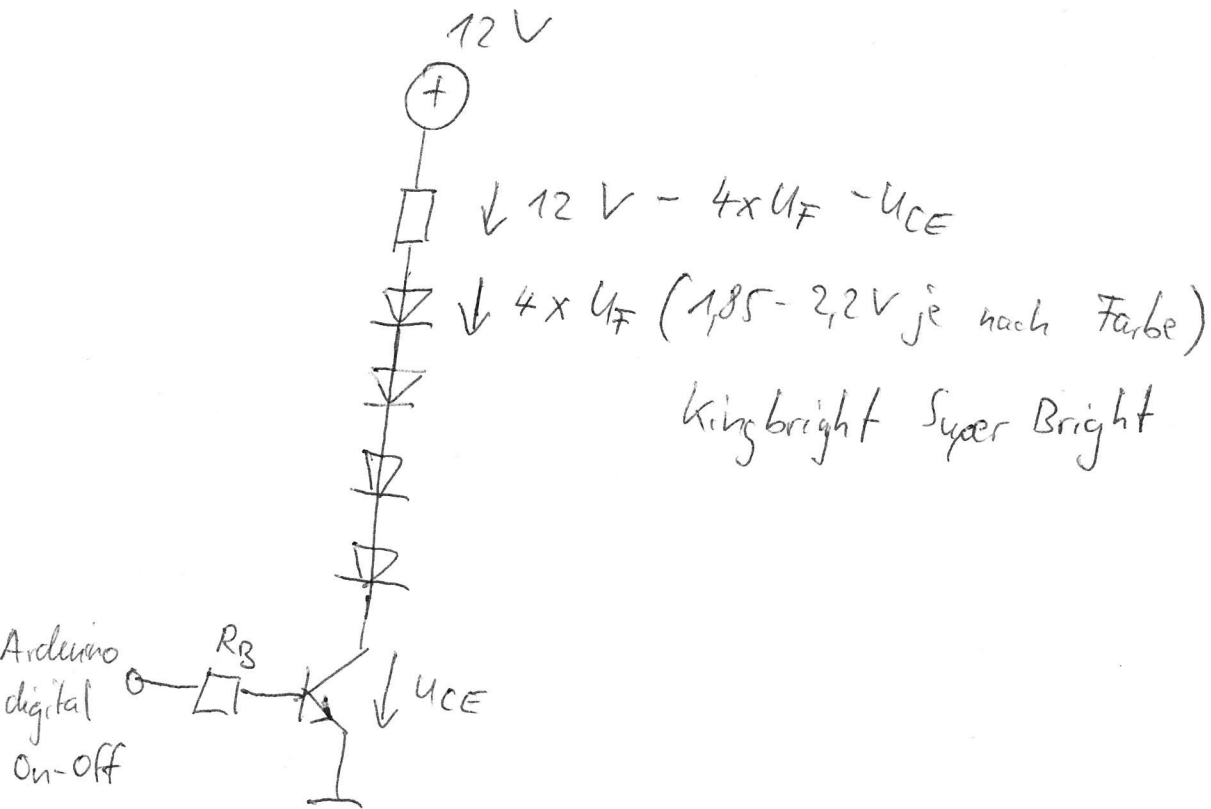 12 V
+
12 V - 4x UF - UCE
4 x UF (1,85 - 2,2V je nach Farbe)
Kingbright Super Bright
RB
Arduino
digital
On-Off
UCE